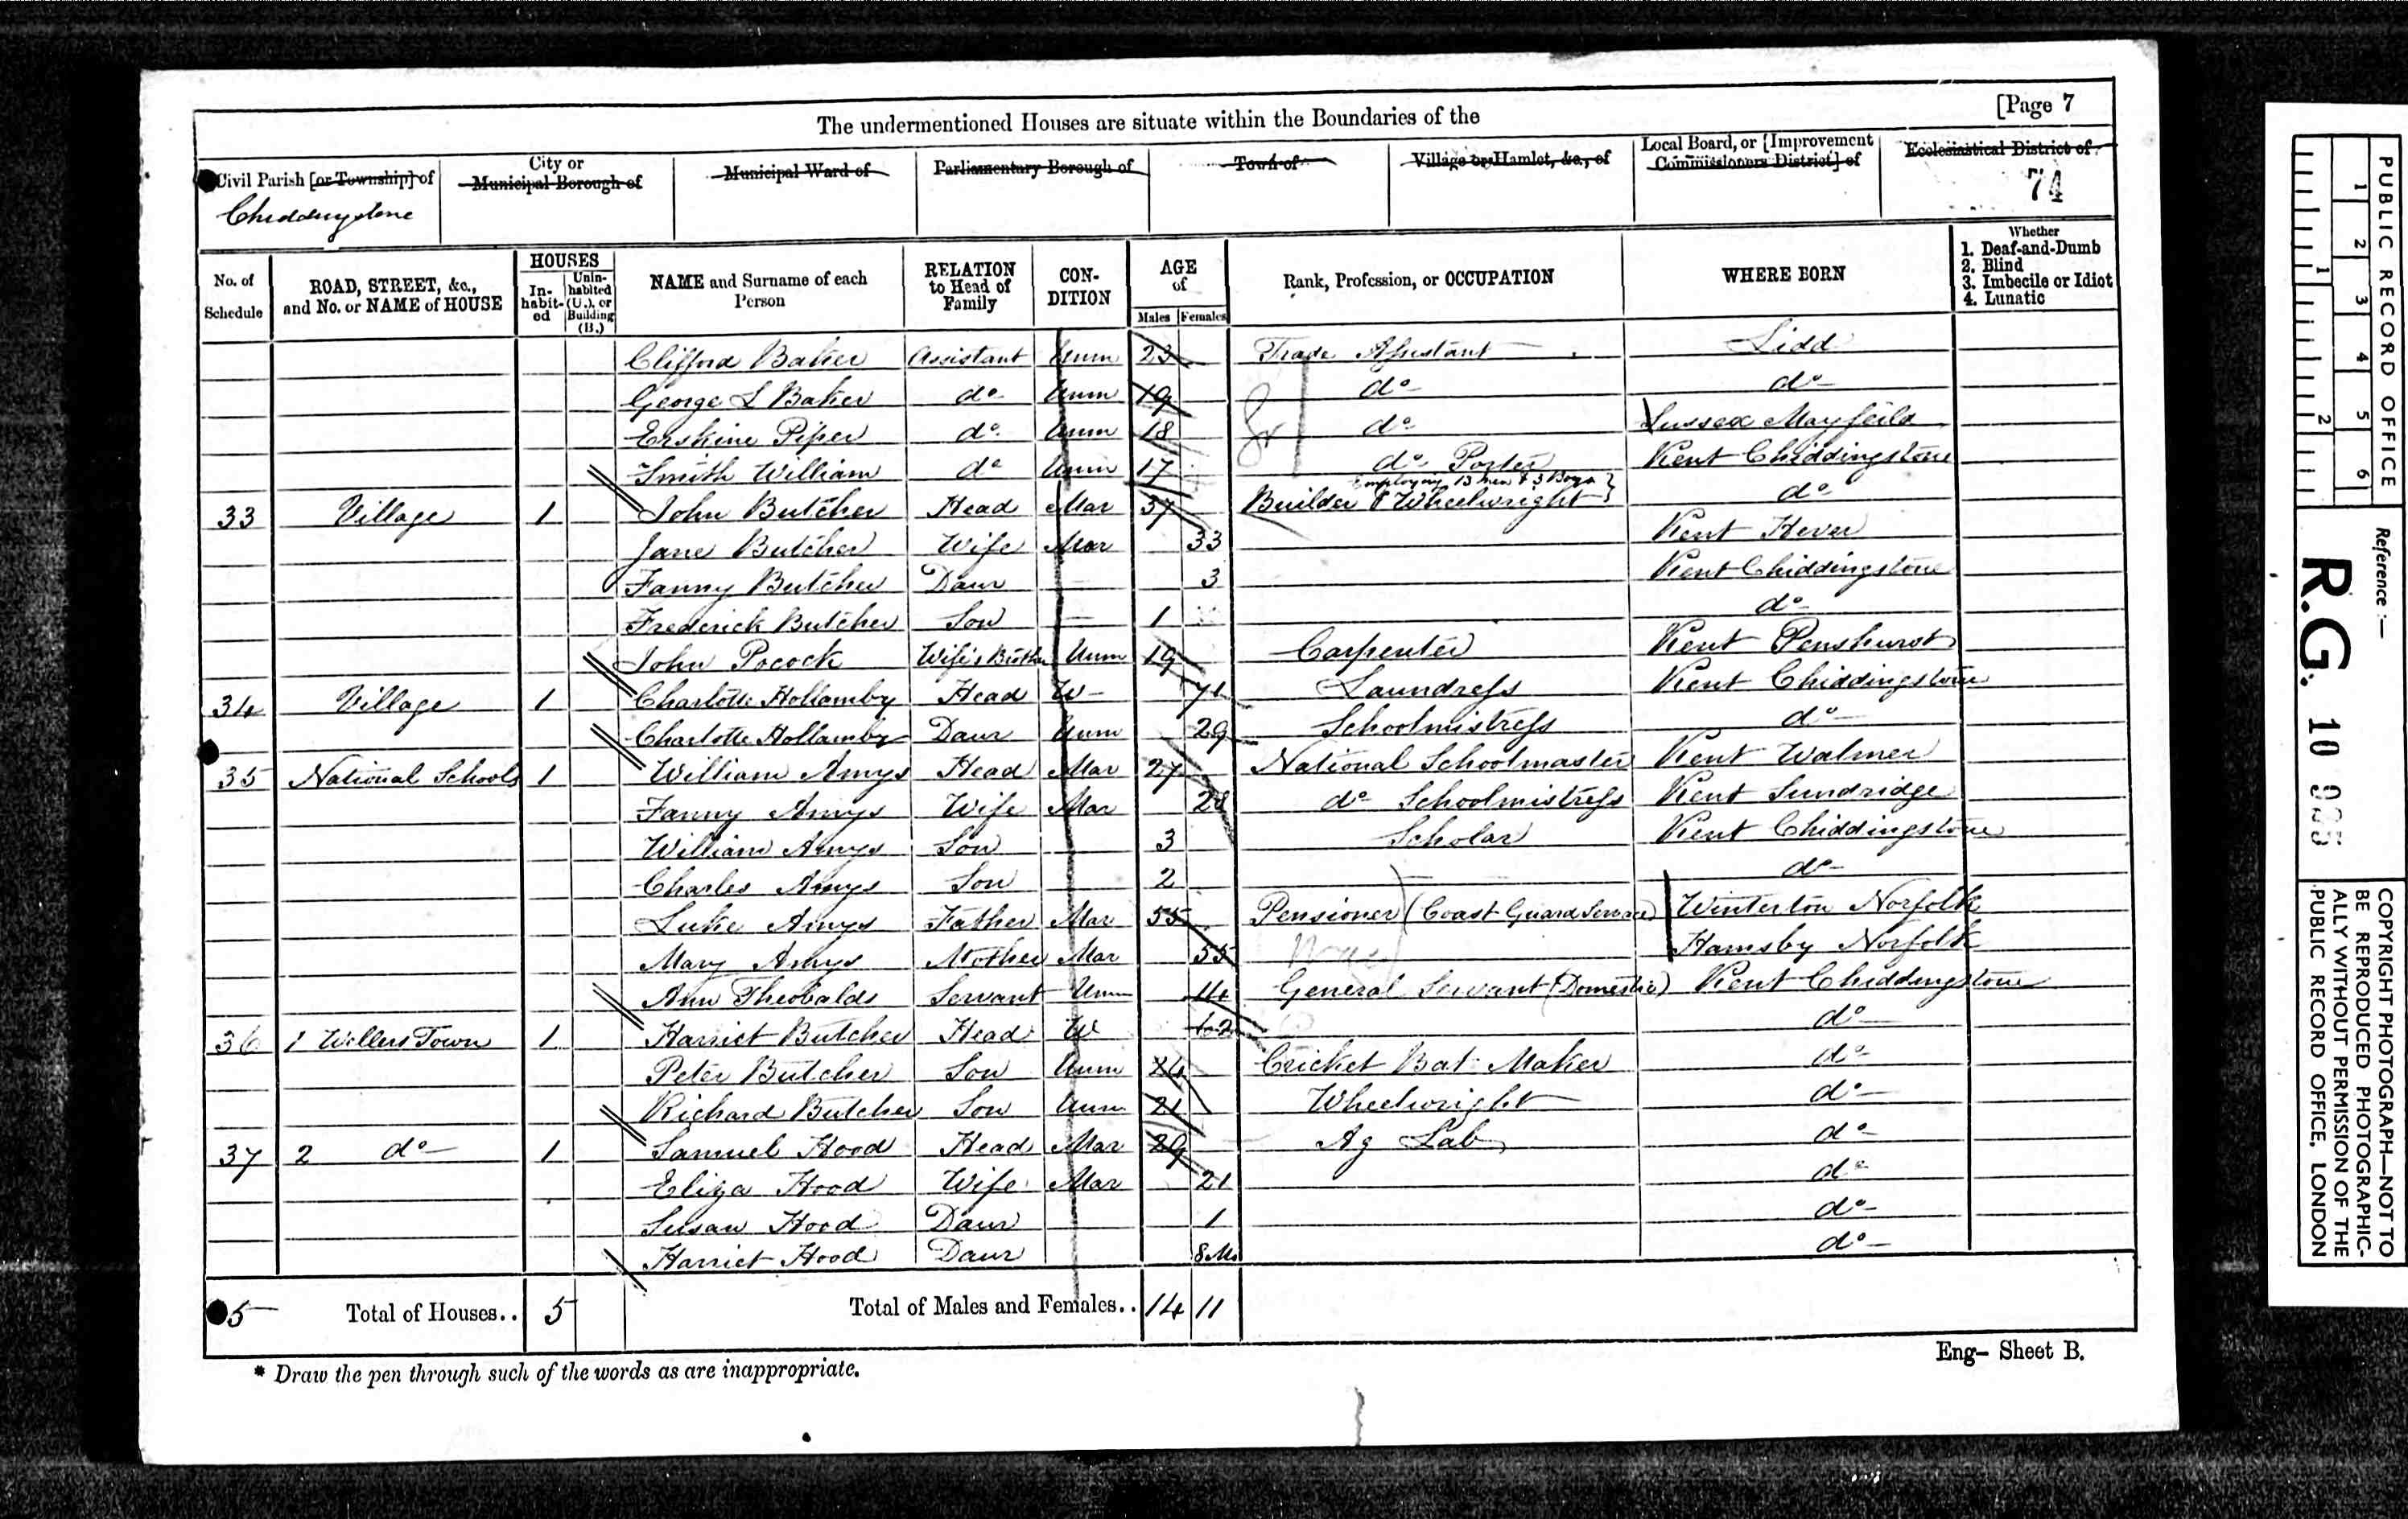 [Page 7
The undermentioned Houses are situate within the Boundaries of the
Civil Parish [or Township] of
City or Municipal Borough of
Municipal Ward of
Parliamentary Borough of
Town of
Village or Hamlet, &c., of
Local Board, or [Improvement Commissioners District] of
Ecclesiastical District of
Chiddingstone
74
No. of Schedule
ROAD, STREET, &c., and No. or NAME of HOUSE
HOUSES
In-habit-ed
Unin-habited (U.), or Building (B.)
NAME and Surname of each Person
RELATION to Head of Family
CON-DITION
AGE of
Males
Females
Rank, Profession, or OCCUPATION
WHERE BORN
Whether
1. Deaf-and-Dumb
2. Blind
3. Imbecile or Idiot
4. Lunatic
Clifford Baker Assistant Unm 23 Trade Assistant Lidd
George L Baker do Unm 19 do do
Erskine Piper do Unm 18 do Sussex Mayfeild
Smith William do Unm 17 do Porter Kent Chiddingstone
33 Village 1 John Butcher Head Mar 37 Builder & Wheelwright employing 13 men & 3 Boys do
Jane Butcher Wife Mar 33 Kent Hever
Fanny Butcher Daur 3 Kent Chiddingstone
Frederick Butcher Son 1 do
John Pocock Wife's Brother Unm 19 Carpenter Kent Penshurst
34 Village 1 Charlotte Hollamby Head W 71 Laundress Kent Chiddingstone
Charlotte Hollamby Daur Unm 29 Schoolmistress do
35 National Schools 1 William Amys Head Mar 27 National Schoolmaster Kent Walmer
Fanny Amys Wife Mar 28 do Schoolmistress Kent Sundridge
William Amys Son 3 Scholar Kent Chiddingstone
Charles Amys Son 2 do
Luke Amys Father Mar 55 Pensioner (Coast Guard Service) Winterton Norfolk
Mary Amys Mother Mar 55 Hamsby Norfolk
Ann Theobalds Servant Unm 14 General Servant (Domestic) Kent Chiddingstone
36 1 Wellers Town 1 Harriet Butcher Head W 62 do
Peter Butcher Son Unm 24 Cricket Bat Maker do
Richard Butcher Son Unm 21 Wheelwright do
37 2 do 1 Samuel Hood Head Mar 29 Ag Lab do
Eliza Hood Wife Mar 21 do
Susan Hood Daur 1 do
Harriet Hood Daur 8 Ms do
5 Total of Houses.. 5 Total of Males and Females.. 14 11
* Draw the pen through such of the words as are inappropriate.
Eng- Sheet B.
PUBLIC RECORD OFFICE
1 2 3 4 5 6
1 2
Reference :-
R.G. 10
COPYRIGHT PHOTOGRAPH—NOT TO
BE REPRODUCED PHOTOGRAPHIC-
ALLY WITHOUT PERMISSION OF THE
PUBLIC RECORD OFFICE, LONDON